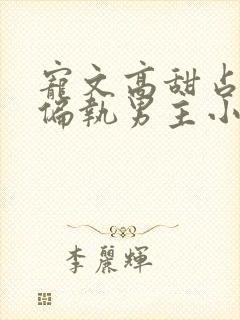 寵文高甜占
偏執男主小
李麗輝